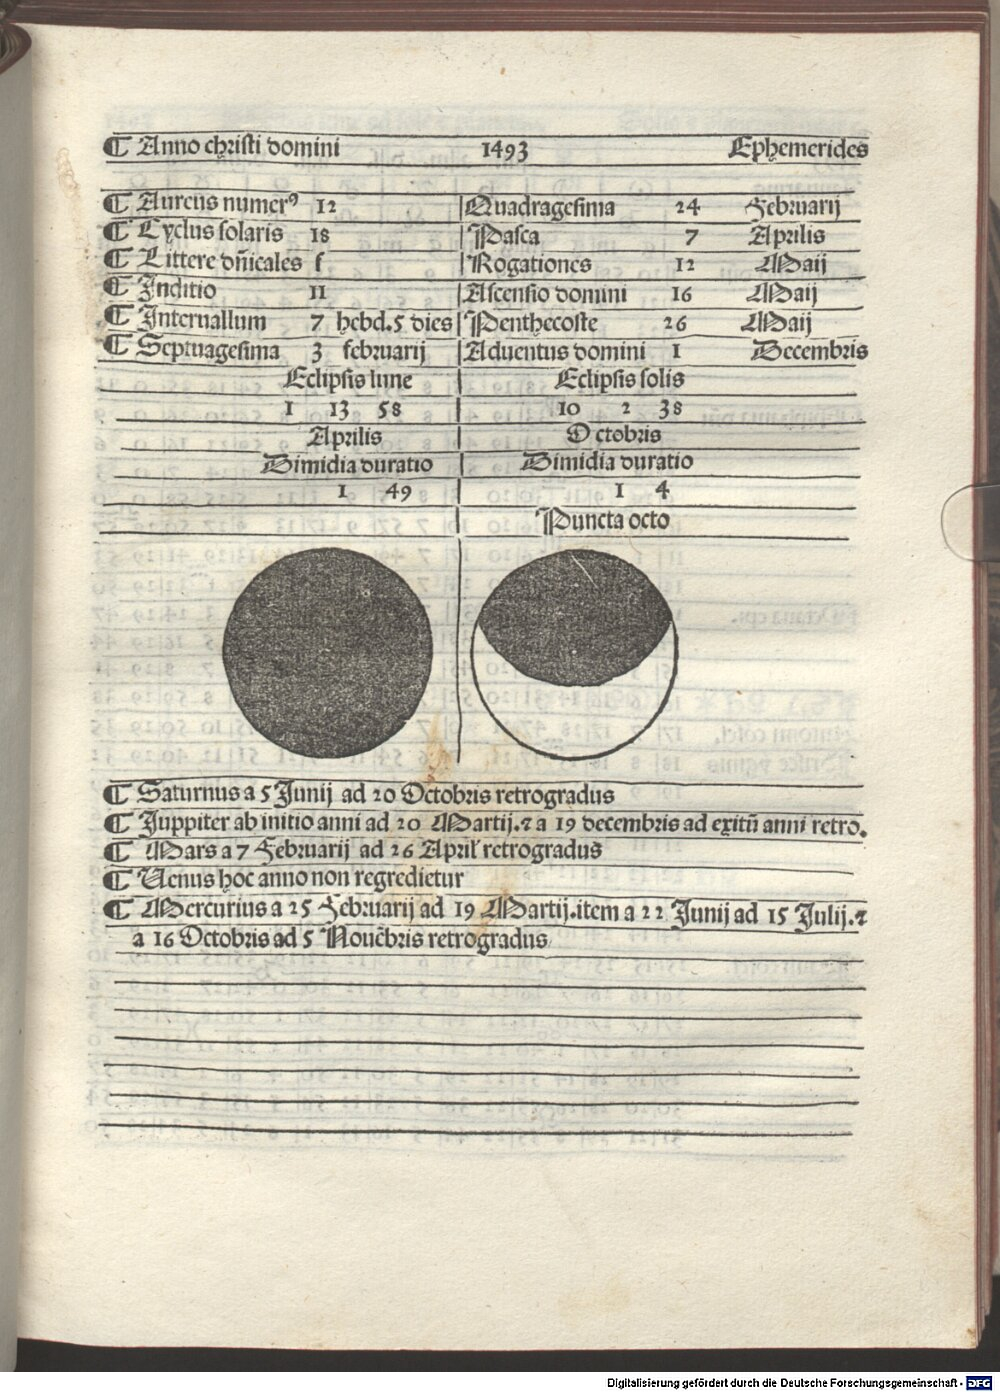 ¶ Anno christi domini 1493 Ephemerides
¶ Aureus numerꝰ 12 Quadragesima 24 Februarij
¶ Cyclus solaris 18 Pasca 7 Aprilis
¶ Littere dn̄icales f Rogationes 12 Maij
¶ Inditio 11 Ascensio domini 16 Maij
¶ Interuallum 7 hebd. 5 dies Penthecoste 26 Maij
¶ Septuagesima 3 februarij Aduentus domini 1 Decembris
Eclipsis lune Eclipsis solis
1 13 58 10 2 38
Aprilis Octobris
Dimidia duratio Dimidia duratio
1 49 1 4
Puncta octo
¶ Saturnus a 5 Junij ad 20 Octobris retrogradus
¶ Juppiter ab initio anni ad 20 Martij. ⁊ a 19 decembris ad exitū anni retro.
¶ Mars a 7 Februarij ad 26 April' retrogradus
¶ Uenus hoc anno non regredietur
¶ Mercurius a 25 Februarij ad 19 Martij. item a 22 Junij ad 15 Julij. ⁊
a 16 Octobris ad 5 Nouēbris retrogradus
Digitalisierung gefördert durch die Deutsche Forschungsgemeinschaft - DFG